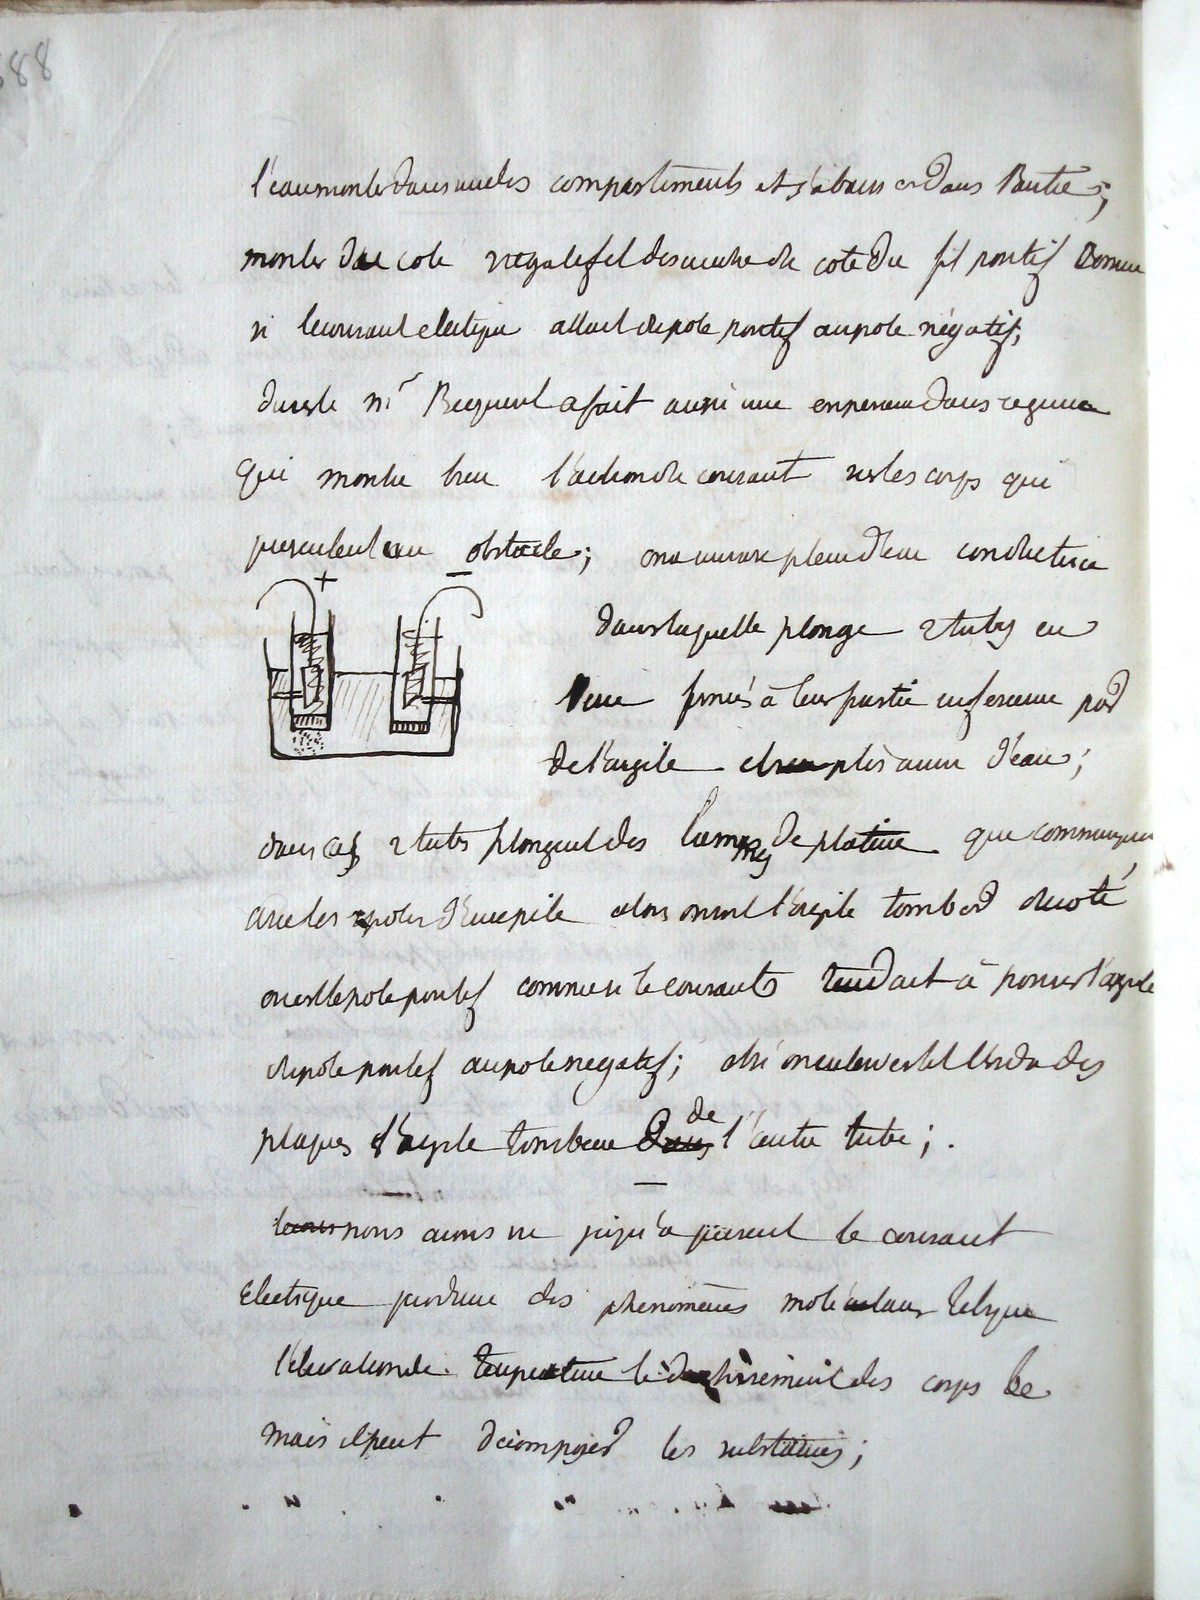 88
l'eau monte dans un des compartiments et s'abaisse dans l'autre;
monte du coté négatif et descend du coté du fil positif comme
si le courant électrique allait du pole positif au pole négatif;
du reste Mr Becquerel a fait aussi une experience dans ce genre
qui montre bien l'action du courant sur les corps qui
presentent un obstacle; on a un vase plein d'eau conductrice
+ −
dans laquelle plonge 2 tubes en
verre fermés à leur partie inferieure par
de l'argile et remplis aussi d'eau;
dans ces 2 tubes plongent des lames de platine que communiquent
avec les 2 poles d'une pile alors on voit l'argile tomber du coté
ou est le pole positif comme si le courant tendait à pousser l'argile
du pole positif au pole negatif; et si on intervertit l'ordre des
plaques l'argile tombera de l'autre tube;
nous avons vu jusqu'à présent le courant
electrique produire des phenomènes moléculaires tels que
l'élévation de température le déchirement des corps &c
mais il peut décomposer les substances;